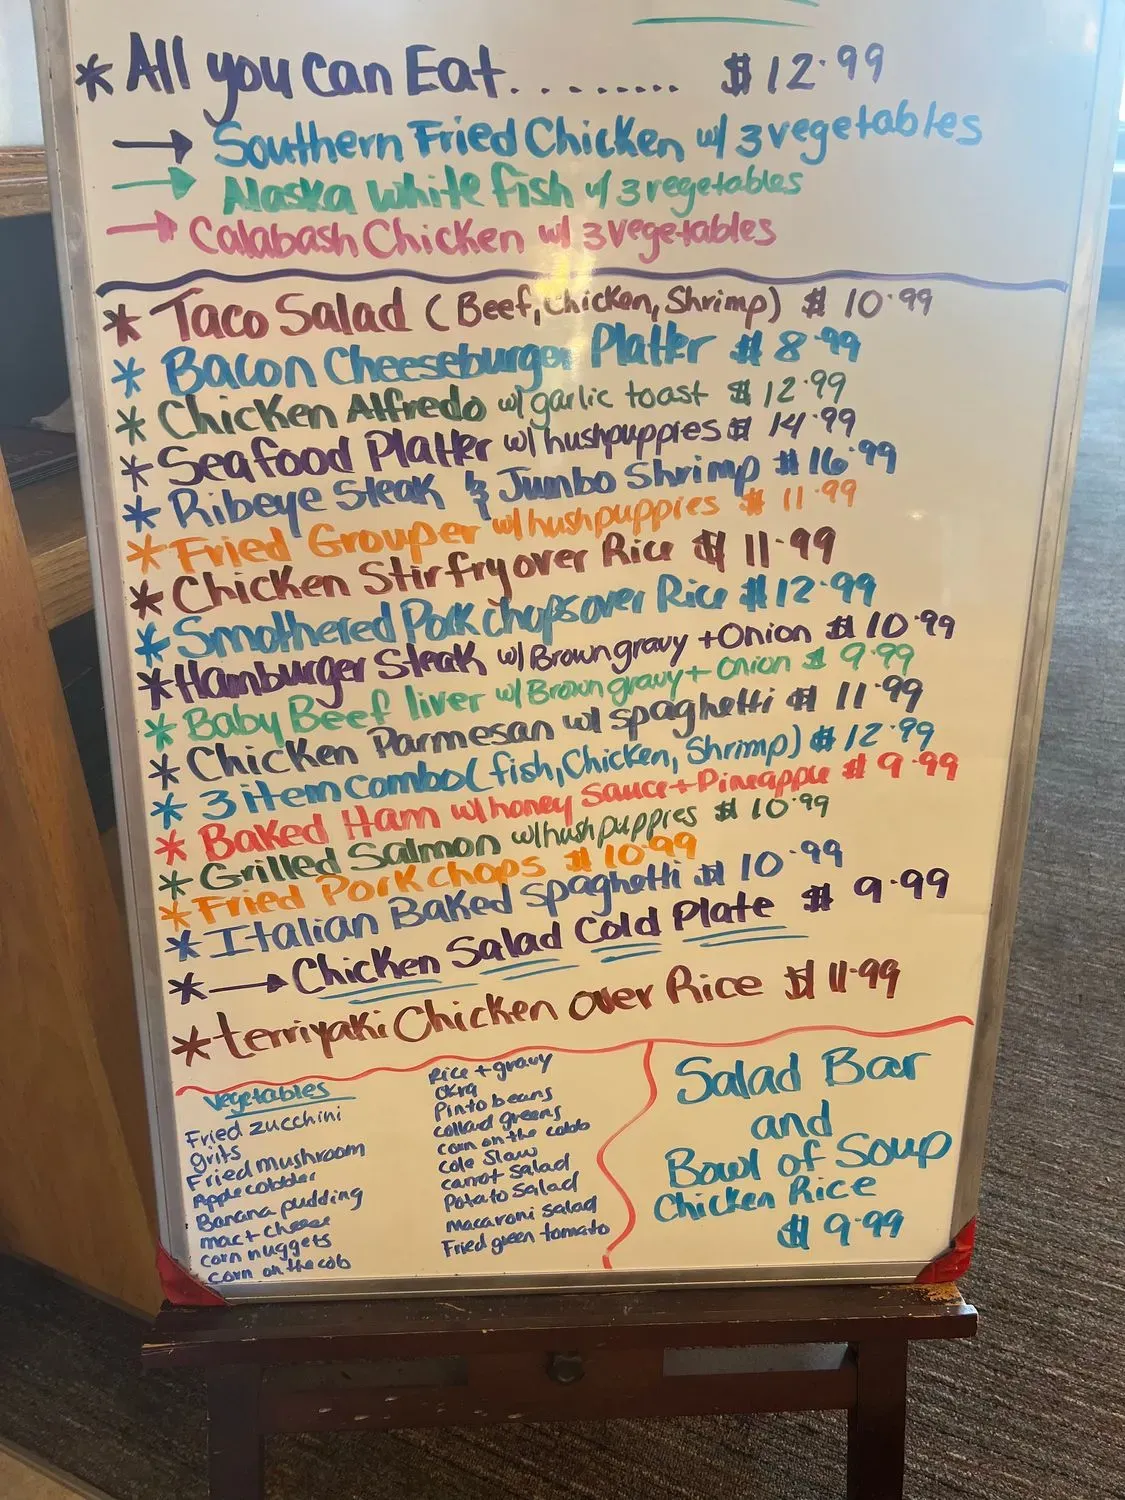 * All you can Eat.......... $12.99
→ Southern Fried Chicken w/ 3 vegetables
→ Alaska white fish w/ 3 vegetables
→ Calabash Chicken w/ 3 vegetables
* Taco Salad (Beef, Chicken, Shrimp) $10.99
* Bacon Cheeseburger Platter $8.99
* Chicken Alfredo w/ garlic toast $12.99
* Seafood Platter w/ hushpuppies $14.99
* Ribeye Steak & Jumbo Shrimp $16.99
* Fried Grouper w/ hushpuppies $11.99
* Chicken Stir fry over Rice $11.99
* Smothered Pork chops over Rice $12.99
* Hamburger Steak w/ Brown gravy + Onion $10.99
* Baby Beef liver w/ Brown gravy + onion $9.99
* Chicken Parmesan w/ spaghetti $11.99
* 3 item combo (fish, Chicken, Shrimp) $12.99
* Baked Ham w/ honey sauce + Pineapple $9.99
* Grilled Salmon w/ hushpuppies $10.99
* Fried Pork chops $10.99
* Italian Baked spaghetti $10.99
* → Chicken Salad Cold Plate $9.99
* terriyaki Chicken over Rice $11.99
Vegetables
Fried zucchini
grits
Fried mushroom
Apple cobbler
Banana pudding
mac + cheese
corn nuggets
corn on the cob
Rice + gravy
Okra
Pinto beans
collard greens
corn on the cobb
cole slaw
carrot salad
Potato salad
macaroni salad
Fried green tomato
Salad Bar
and
Bowl of Soup
Chicken Rice
$9.99